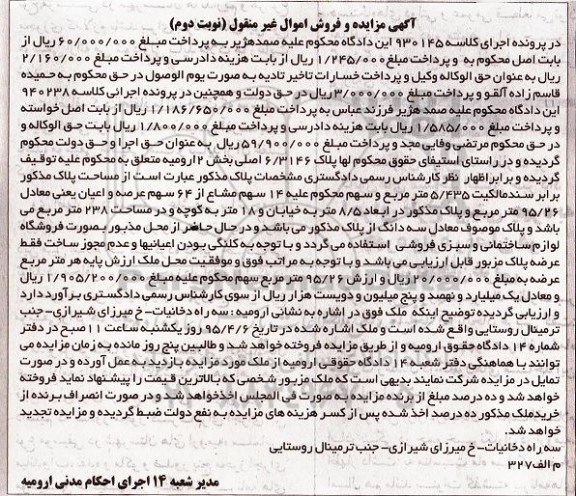 آگهی مزایده و فروش اموال غیر منقول (نوبت دوم)
در پرونده اجرای کلاسه ۹۳۰۱۴۵ این دادگاه محکوم علیه صمدهژیر به پرداخت مبلغ ۶۰/۰۰۰/۰۰۰ ریال از
بابت اصل محکوم به و پرداخت مبلغ ۱/۲۴۵/۰۰۰ ریال از بابت هزینه دادرسی و پرداخت مبلغ ۲/۱۶۰/۰۰۰
ریال به عنوان حق الوکاله وکیل و پرداخت خسارات تاخیر تادیه به صورت یوم الوصول در حق محکوم به حمیده
قاسم زاده آلقو و پرداخت مبلغ ۳/۰۰۰/۰۰۰ ریال در حق دولت و همچنین در پرونده اجرائی کلاسه ۹۴۰۲۳۸
این دادگاه محکوم علیه صمد هژیر فرزند عباس به پرداخت مبلغ ۱/۱۸۶/۶۵۰/۰۰۰ ریال از بابت اصل خواسته
و پرداخت مبلغ ۱/۵۸۵/۰۰۰ ریال بابت هزینه دادرسی و پرداخت مبلغ ۱/۸۰۰/۰۰۰ ریال بابت حق الوکاله و
در حق محکوم مرتضی وفایی مجد و پرداخت مبلغ ۵۹/۹۰۰/۰۰۰ ریال به عنوان حق اجرا و حق دولت محکوم
گردیده و در راستای استیفای حقوق محکوم لها پلاک ۶/۳۱۴۶ اصلی بخش ۲ ارومیه متعلق به محکوم علیه توقیف
گردیده و برابر اظهار نظر کارشناس رسمی دادگستری مشخصات پلاک مذکور عبارت است از مساحت پلاک مذکور
برابر سند مالکیت ۵/۴۳۵ متر مربع و سهم محکوم علیه ۱۴ سهم مشاع از ۶۴ سهم عرصه و اعیان یعنی معادل
۹۵/۲۶ متر مربع و پلاک مذکور در ابعاد ۸/۵ متر به خیابان و ۱۸ متر به کوچه و در مساحت ۲۳۸ متر مربع می
باشد و پلاک موصوف معادل سه دانگ از پلاک مذکور می باشد و در حال حاضر از محل مذبور بصورت فروشگاه
لوازم ساختمانی و سبزی فروشی استفاده می گردد و با توجه به کلنگی بودن اعیانیها و عدم مجوز ساخت فقط
عرصه پلاک مزبور قابل ارزیابی می باشد و با توجه به مراتب فوق و موقعیت محل ملک ارزش پایه هر متر مربع
عرصه به مبلغ ۲۰/۰۰۰/۰۰۰ ریال و ارزش ۹۵/۲۶ متر مربع سهم محکوم علیه به مبلغ ۱/۹۰۵/۲۰۰/۰۰۰ ریال
و معادل یک میلیارد و نهصد و پنج میلیون و دویست هزار ریال از سوی کارشناس رسمی دادگستری برآورد دارد
و ارزیابی گردیده توضیح اینکه ملک فوق در اشاره به نشانی ارومیه : سه راه دخانیات- خ میرزای شیرازی- جنب
ترمینال روستایی واقع شده است و ملک اشاره شده در تاریخ ۹۵/۴/۶ روز یکشنبه ساعت ۱۱ صبح در دفتر
شماره ۱۴ دادگاه حقوق ارومیه و از طریق مزایده فروخته خواهد شد و طالبین پنج روز مانده به زمان مزایده می
توانند با هماهنگی دفتر شعبه ۱۴ دادگاه حقوقی ارومیه از ملک مورد مزایده بازدید به عمل آورده و در صورت
تمایل در مزایده شرکت نمایند بدیهی است که ملک مزبور شخصی که بالاترین قیمت را پیشنهاد نماید فروخته
خواهد شد و ده درصد مبلغ از برنده مزایده به صورت فی المجلس اخذ خواهد شد و در صورت انصراف برنده از
خرید ملک مذکور ده درصد اخذ شده پس از کسر هزینه های مزایده به نفع دولت ضبط گردیده و مزایده تجدید
خواهد شد.
سه راه دخانیات- خ میرزای شیرازی- جنب ترمینال روستایی
م الف ۳۲۷
مدیر شعبه ۱۴ اجرای احکام مدنی ارومیه